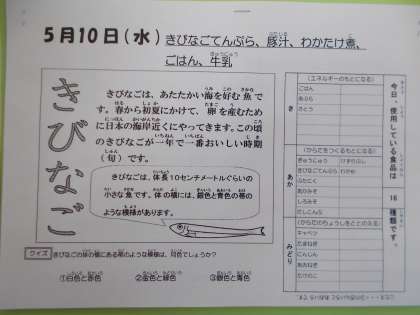 5月10日(水) きびなごてんぷら、豚汁、わかたけ煮、
ごはん、牛乳
きびなご
きびなごは、あたたかい海を好む魚で
す。春から初夏にかけて、卵を産むため
に日本の海岸近くにやってきます。この頃
のきびなごが一年で一番おいしい時期
(旬)です。
きびなごは、体長10センチメートルぐらいの
小さな魚です。体の横には、銀色と青色の帯の
ような模様があります。
クイズ きびなごの体の横にある帯のような模様は、何色でしょうか?
①白色と赤色 ②金色と緑色 ③銀色と青色
今日、使用している食品は 16 種類です。
き
(エネルギーのもとになる)
ごはん
あぶら
さとう
あか
(からだをつくるもとになる)
ぎゅうにゅう けずりぶし
きびなごてんぷら わかめ
ぶたにく
あかみそ
しろみそ
だいこんぶ
みどり
(からだのちょうしをととのえる)
キャベツ
たまねぎ
にんじん
あおねぎ
たけのこ